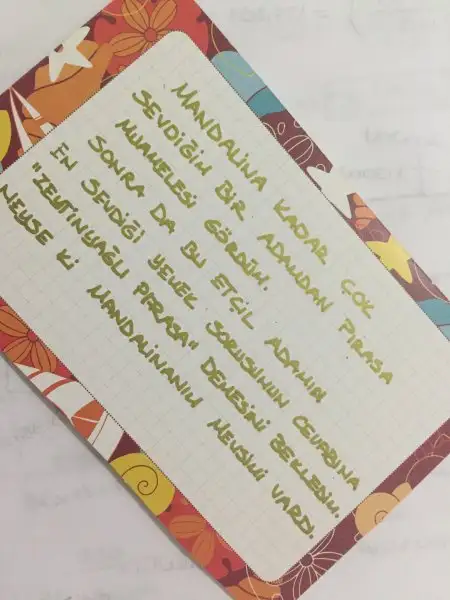 MANDALİNA KADAR ÇOK
SEVDİĞİM BİR ADAMDAN PIRASA
MUAMELESİ GÖRDÜM.
SONRA DA BU ETÇİL ADAMIN
EN SEVDİĞİ YEMEK SORUSUNUN CEVABINA
"ZEYTİNYAĞLI PIRASA" DEMESİNİ BEKLEDİM.
NEYSE Kİ MANDALİNANIN MEVSİMİ VARDI.